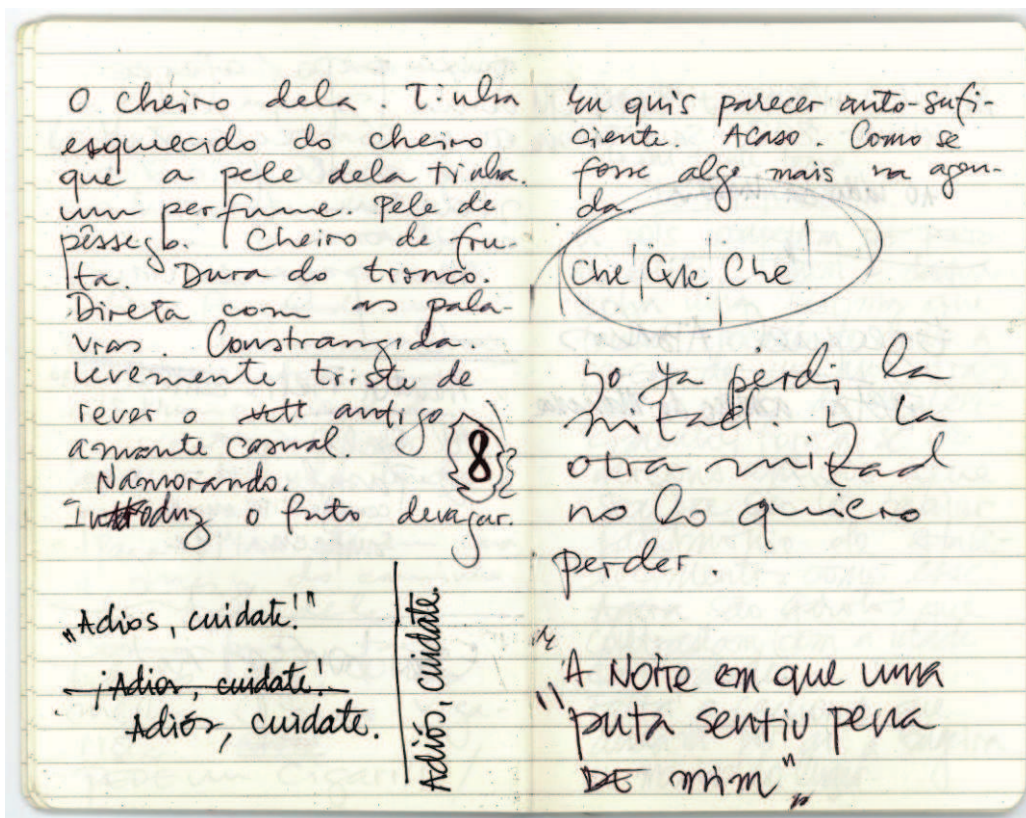 O cheiro dela. Tinha
esquecido do cheiro
que a pele dela tinha.
um perfume. Pele de
pêssego. Cheiro de fru-
ta. Dura do tronco.
Direta com as pala-
vras. Constrangida.
levemente triste de
rever o antigo
amante casual.
Namorando.
Introduz o fato devagar.
8
"Adios, cuidate!"
¡Adios, cuidate!
Adiós, cuidate.
Adiós, cuidate.
Eu quis parecer auto-sufi-
ciente. Acaso. Como se
fosse algo mais na agen-
da.
Che Che
yo ya perdi la
mitad. y la
otra mitad
no lo quiero
perder.
"A Noite em que uma
puta sentiu pena
DE mim"